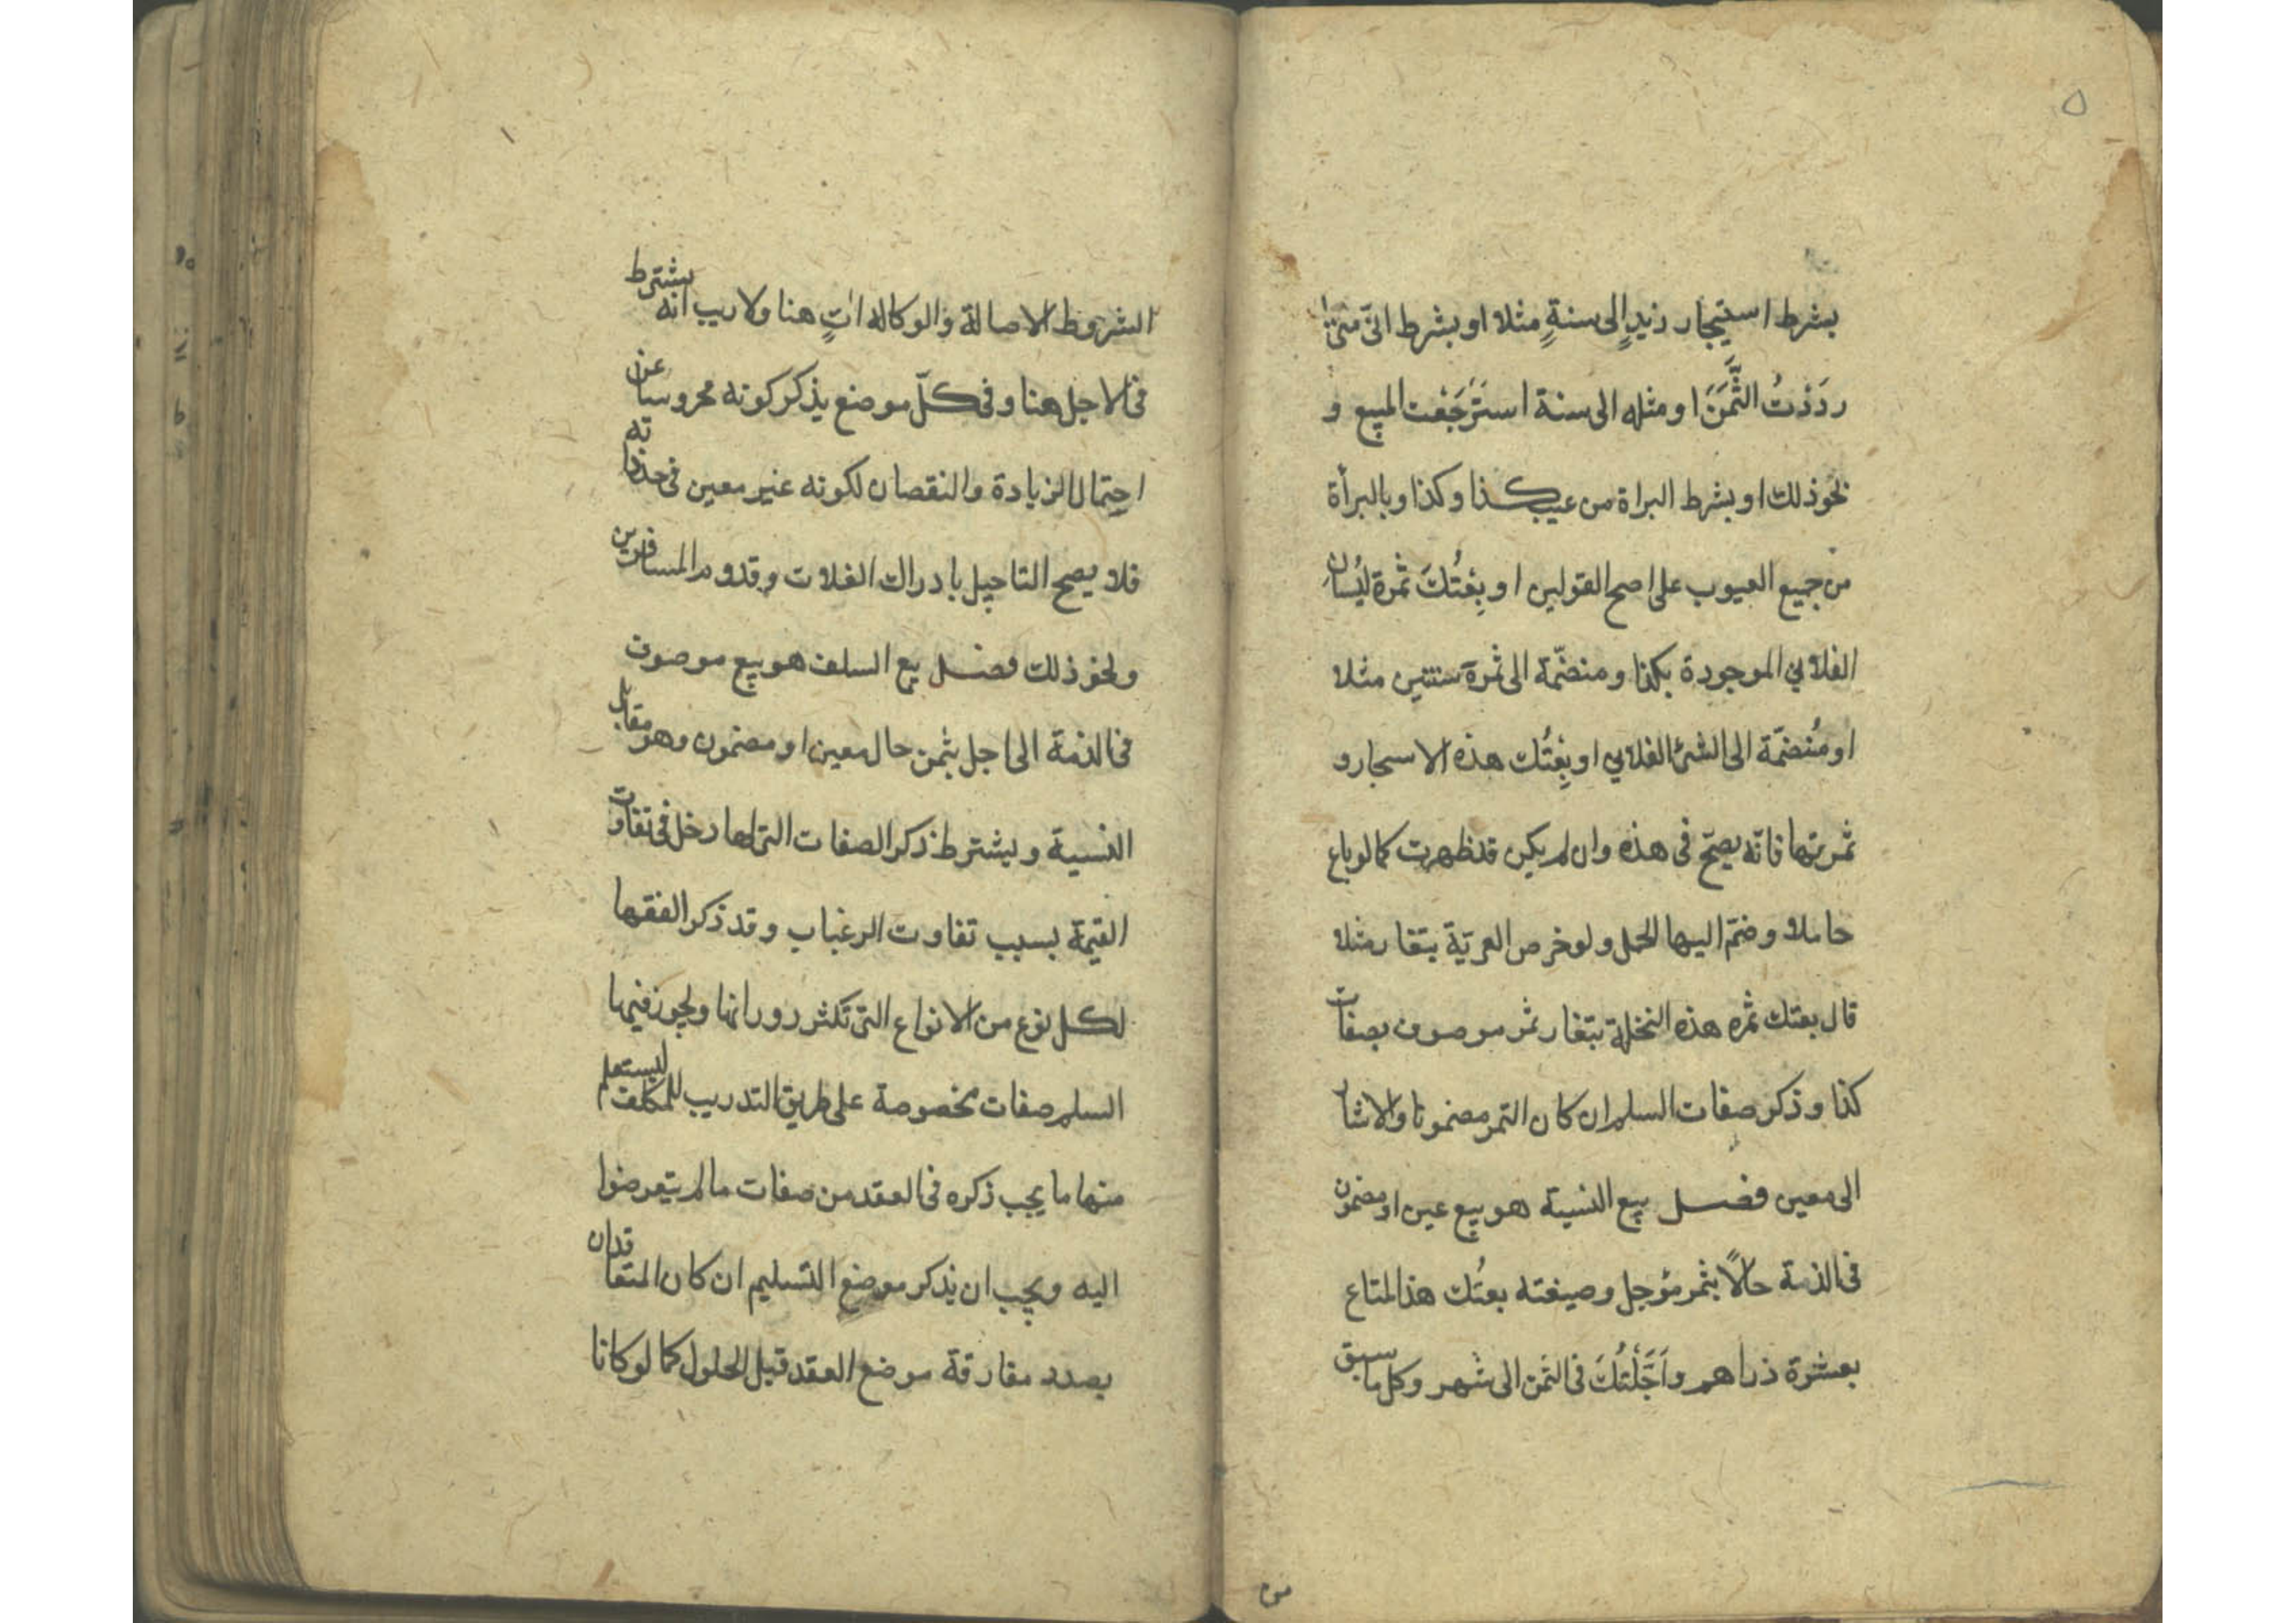 ٥
بشرط استيجار زيدٍ الى سنةٍ مثلا او بشرط انّى متىٰ
رَدَدْتُ الثَّمَنَ او مثله الى سنة استَرْجَعْت المبيع و
نحو ذلك او بشرط البراة من عيب كذا وكذا وبالبرأة
من جميع العيوب على اصح القولين او بِعْتُكَ ثمرة البُستان
الفلاني الموجودة بكذا ومنضمّة الى ثمرة سنتين مثلا
او مُنضمّة الى الشئ الفلاني او بِعْتُك هذه الاسجار و
ثمرتها فانّه يصحّ فى هذه وان لم يكن قد ظهرت كما لو باع
حاملا وضمّ اليها الحمل ولو خرص العريّة بتقا رمثلا
قال بعتك ثمره هذه النخلة بتغار ثمر موصوف بصفات
كذا وذكر صفات السلم ان كان التمر مضمونا والا شار
الى معين فصل بيع النسية هو بيع عين او مضمون
فى الذمة حالًا بثمر مؤجل وصيغته بعتُك هذا المتاع
بعشرة دراهم واَجَّلْتُكَ فى الثمن الى شهر وكل ما سبق
الشروط الاصالة والوكاله اتٍ هنا ولا ريب انه يشترط
فى الاجل هنا وفى كلّ موضع يذكر كونه محروسا عن
احتمال الزيادة والنقصان لكونه غير معين فى حد ذاته
فلا يصح التاجيل بادراك الغلات وقدوم المسافرين
ونحو ذلك فصل بيع السلف هو بيع موصوف
فى الذمة الى اجل بثمن حال معين او مضمون وهو مقابل
النسية ويشترط ذكر الصفات التى لها دخل فى تفاوت
القيمة بسبب تفاوت الرغباب وقد ذكر الفقها
لكل نوع من الانواع التى تكثر دورانها ويجوز فيها
السلم صفات مخصوصة على طريق التدريب للمكلف ليستعلم
منها ما يجب ذكره فى العقد من صفات ما لم يتعرضوا
اليه ويجب ان يذكر موضع التسليم ان كان المتعاقدان
بصدد مفارقة موضع العقد قبل الحلول كما لو كانا